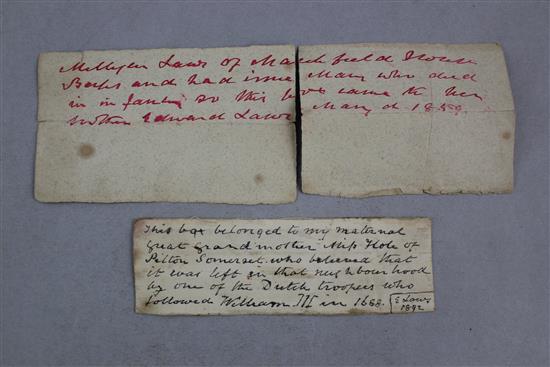 Laws of Marshfield House
Beeks and had issue Mary who died
in infancy so this box came to her
brother Edward Laws. Mary d 1859.
This box belonged to my maternal
great grandmother Miss Hole of
Pilton Somerset who believed that
it was left in that neighbourhood
by one of the Dutch troopers who
followed William III in 1688.
E Laws
1892